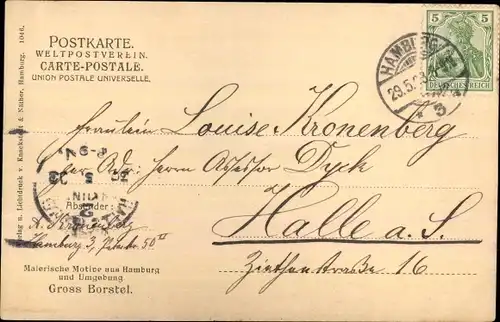 POSTKARTE.
WELTPOSTVEREIN.
CARTE-POSTALE.
UNION POSTALE UNIVERSELLE.
5 5
DEUTSCHES REICH
HAMBURG
29.5.03
* 3
Fräulein Louise Kronenberg
per Adr. Herrn Assessor Dyck
Halle a. S.
Ziethenstraße 16
Absender:
A. Kronenberg
Hamburg 3, 50 II
Malerische Motive aus Hamburg
und Umgebung
Gross Borstel.
Verlag u. Lichtdruck v. Knackstedt & Näther, Hamburg. 1046.